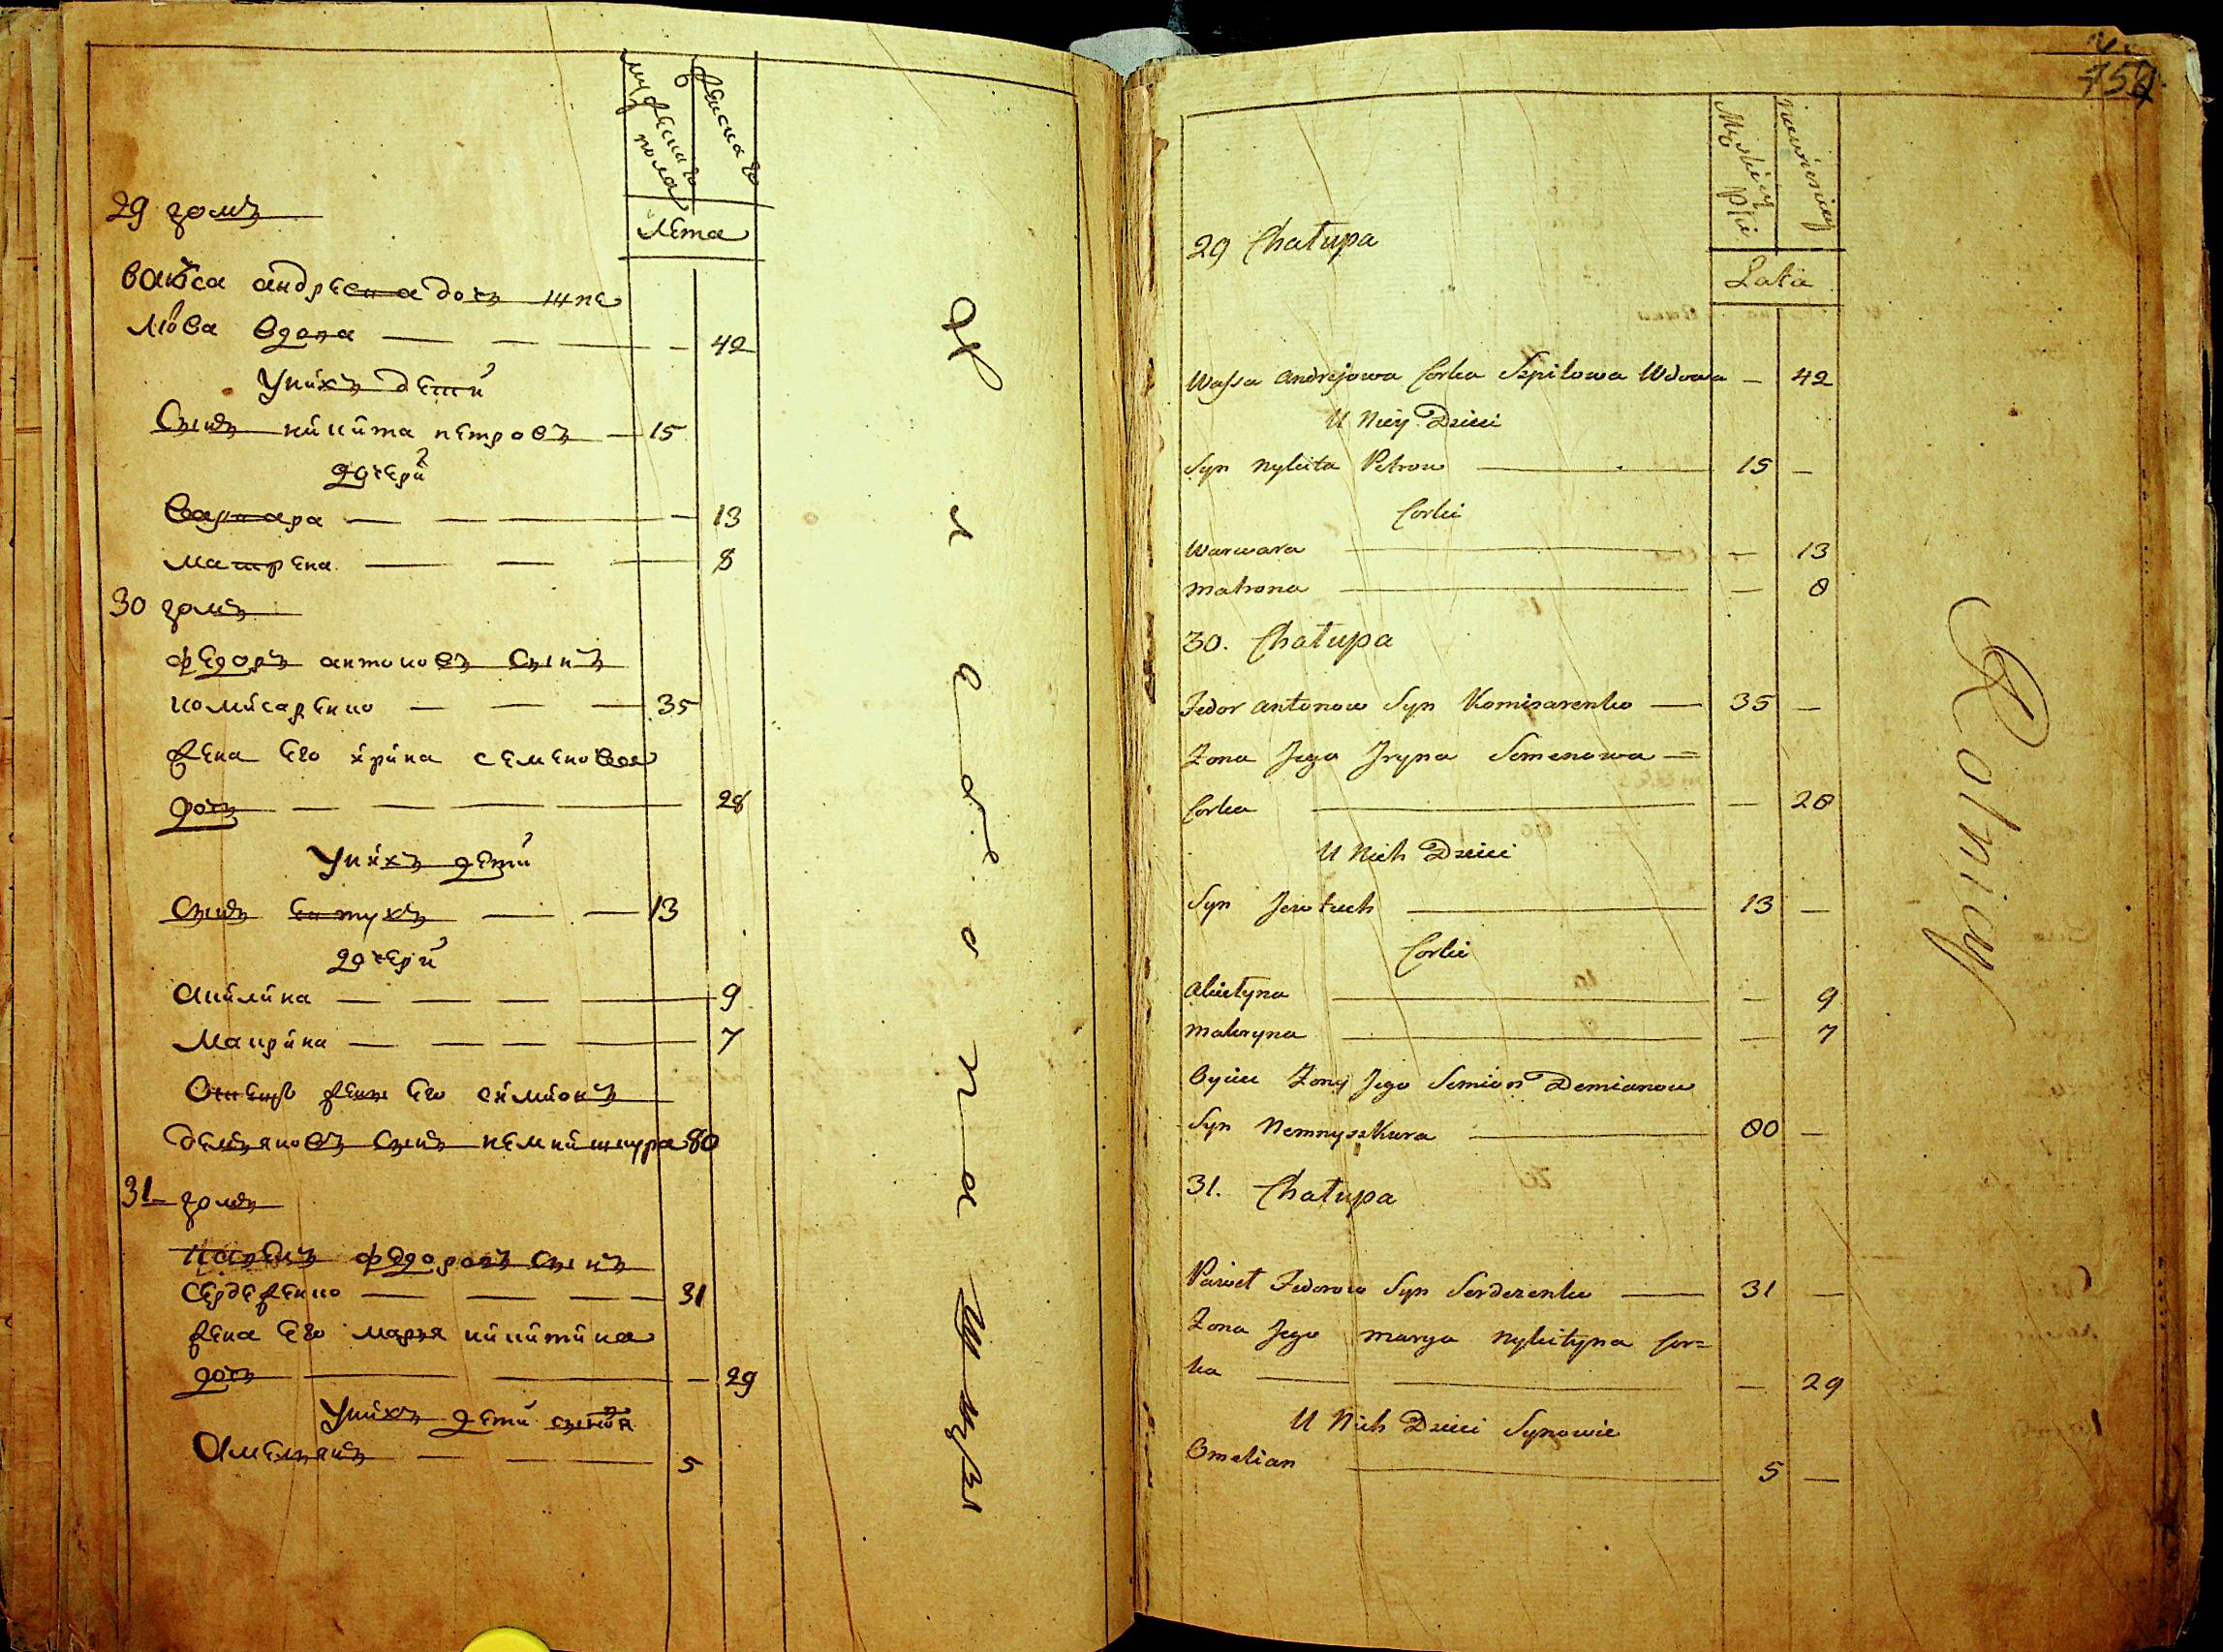 мужеска
пола
женска го
лета
29 домъ
васса андреева дочь шпи
лова вдова — 42
У них дети
Сынъ никита петровъ — 15
дочери
Варвара — 13
матрена — 8
30 домъ
федоръ антоновъ сынъ
комисаренко — 35
жена его ирина семенова
дочь — 28
У нихъ дети
Сынъ евтухъ — 13
дочери
Акилина — 9
Макрина — 7
Отецъ жены его симионъ
демяновъ сынъ немишкура 80
31 домъ
павелъ федоровъ сынъ
сердеженко — 31
жена его маря никитина
дочь — 29
У нихъ дети сыновя
Амелянъ — 5
157
Męskiey
płci
niewieściey
Lata
29 Chałupa
Wassa Andrejowa Corka Szpilowa Wdowa — 42
U Niey Dzieci
Syn Nykita Petrow — 15 —
Corki
Warwara — 13
Matrona — 8
30. Chałupa
Fedor Antonow Syn Komisarenko — 35 —
Zona Jego Jryna Semenowa =
Corka — 28
U Nich Dzieci
Syn Jewtuch — 13 —
Corki
Akietyna — 9
Makryna — 7
Oyciec Zony Jego Semion Demianow
Syn Nemnyszkura — 80 —
31. Chałupa
Paweł Fedorow Syn Serdezenko — 31 —
Zona Jego Marya Nykityna Cor=
ka — 29
U Nich Dzieci Synowie
Omelian — 5 —
Rolnicy